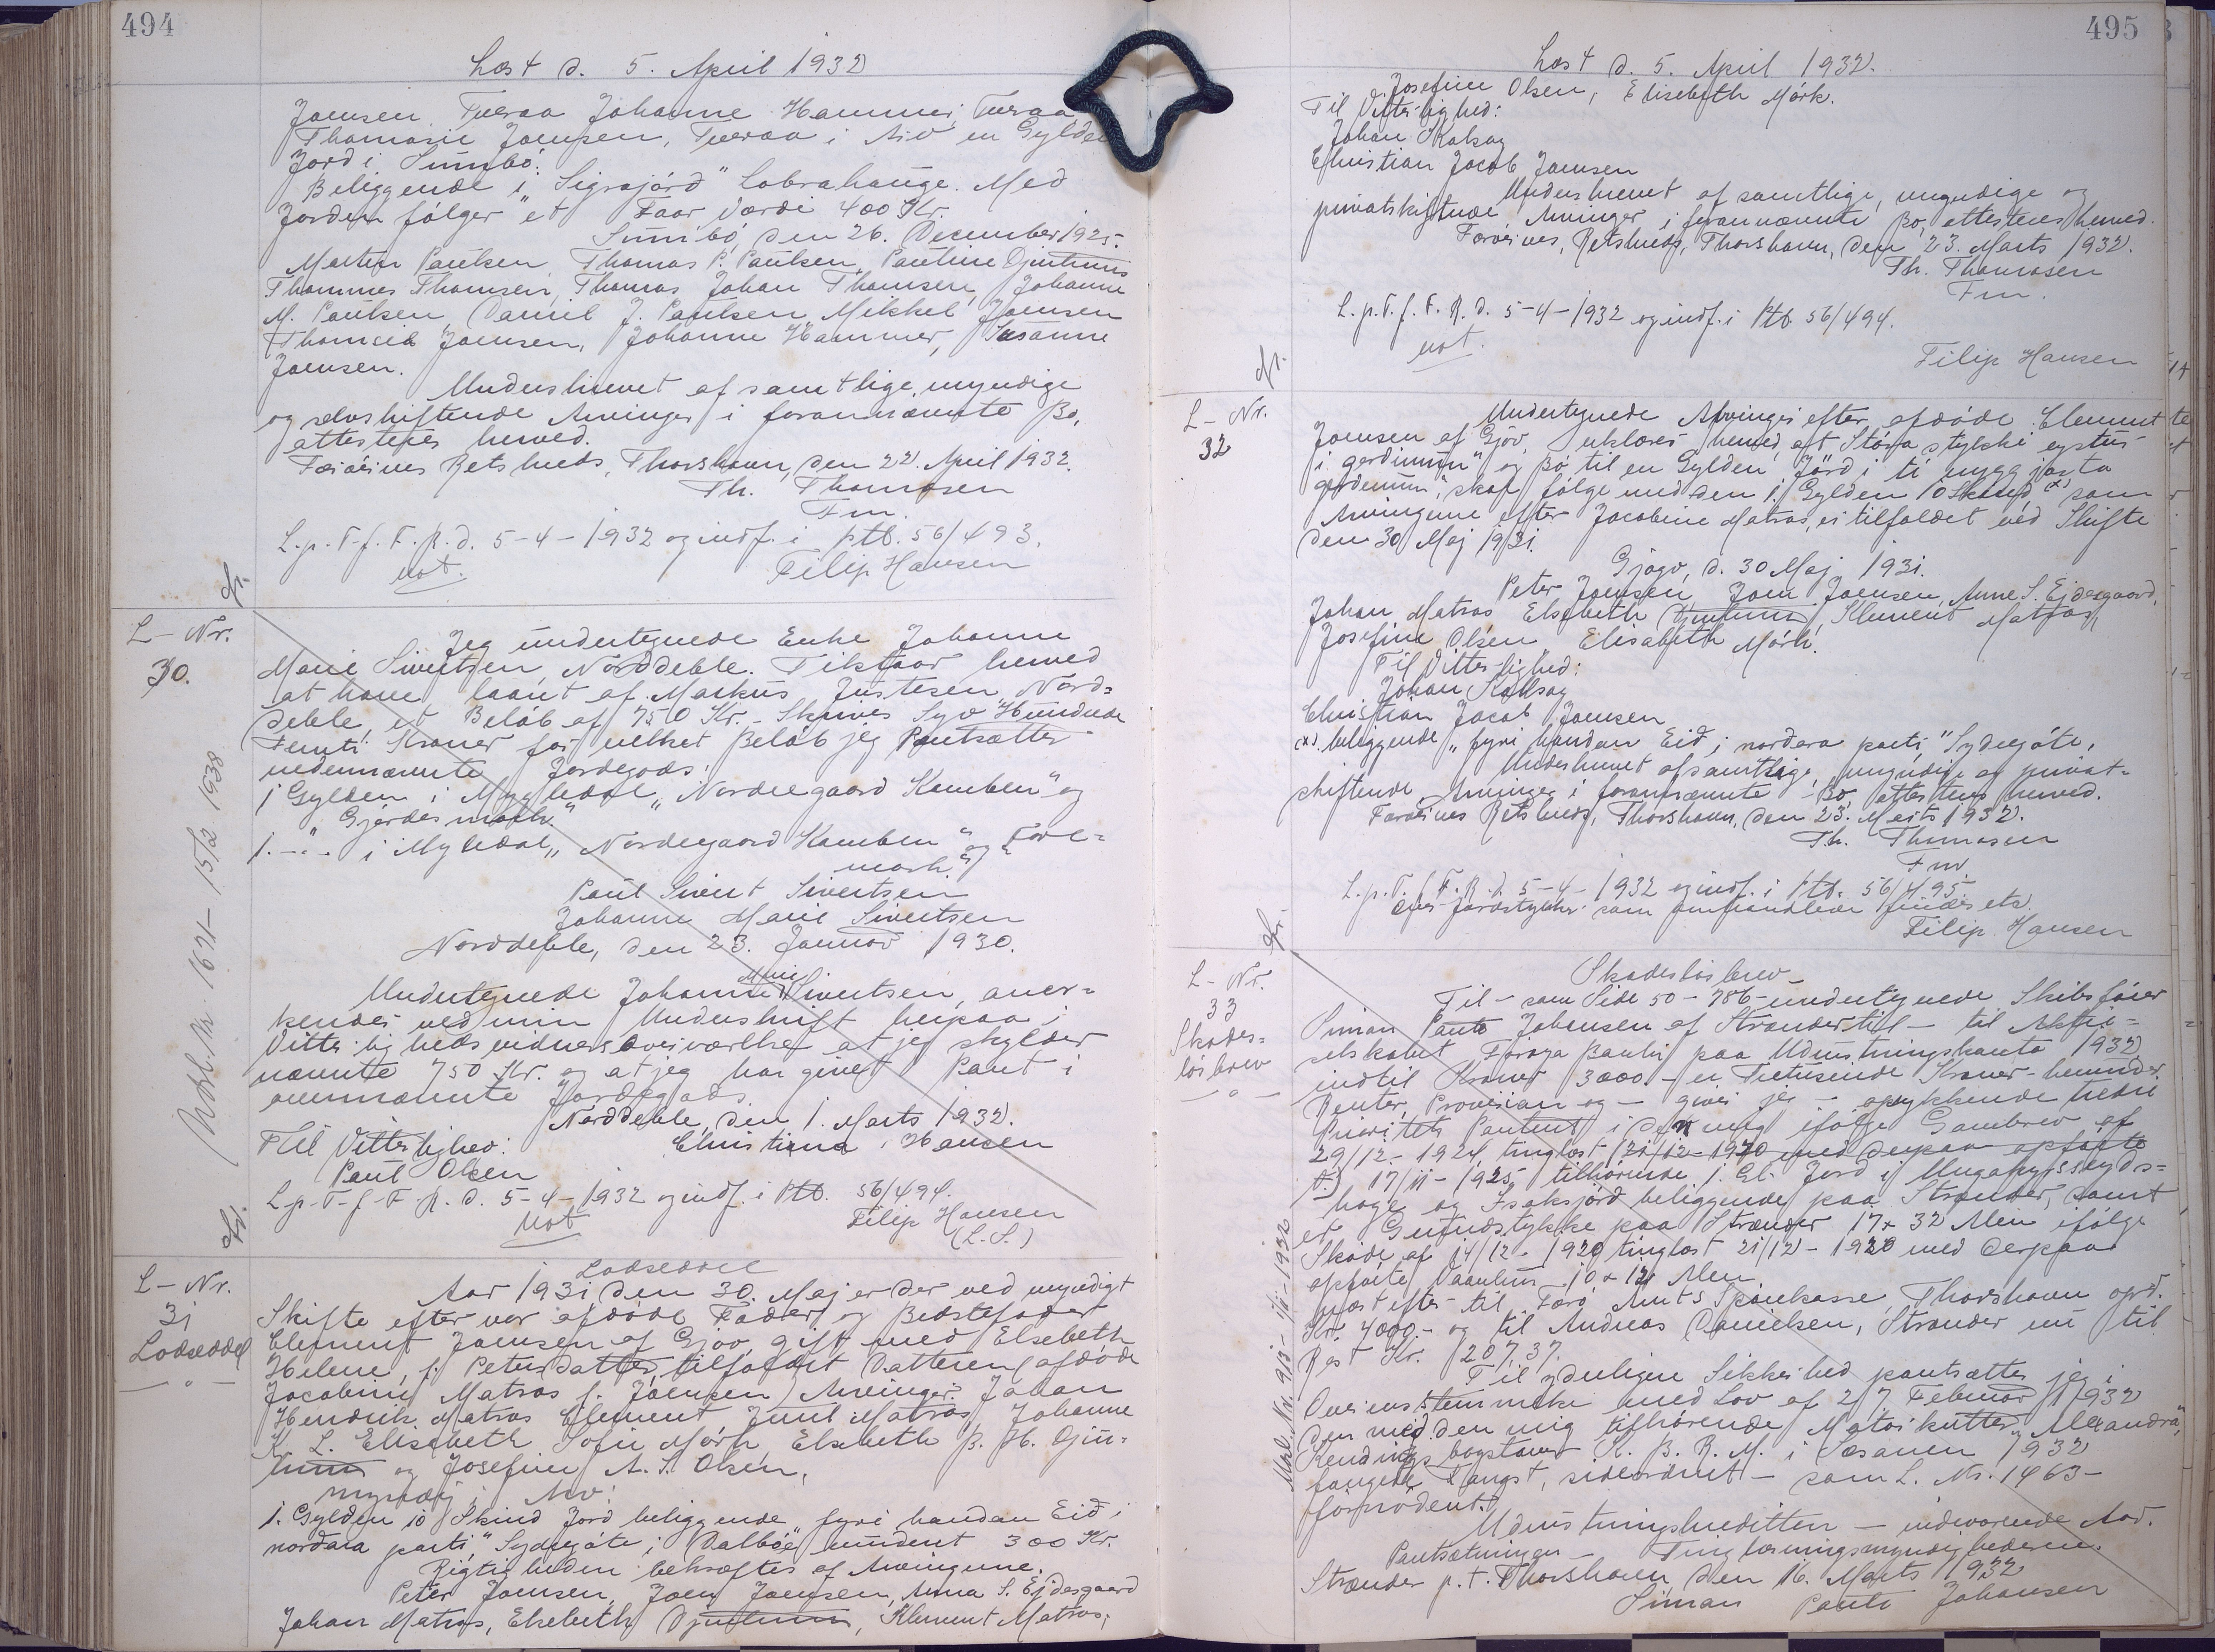 494
Læst d. 5. April 1932
Joensen, Tveraa Johanne Hammer, Tveraa
Thomasie Joensen, Tveraa i Arv en Gylden
Jord i Sumbö.
Beliggende i "Sigrajörd" Lobrahauge. Med
Jorden fölger "et Faar Værdi 400 Kr.
Sumbö, den 26. December 1925.
Morten Paulsen, Thomas P. Paulsen, Pauline Djurhuus
Thommes Thomsen, Thomas Johan Thomsen, Johanne
M. Paulsen, Daniel J. Paulsen, Mikkel Joensen
Thomsia Joensen, Johanne Hammer, Susanne
Joensen.
Underskrevet af samtlige, myndige
og selvskiftende Arvinger i forannævnte Bo,
attesteres herved.
Færöernes Retskreds, Thorshavn, den 22. April 1932.
Th. Thomasen
Fm.
L.p.T.f.F.R.d. 5-4-1932 og indf. i ptb. 56/493.
not.
Filip Hansen
L-Nr.
30.
Jeg undertegnede Enke Johanne
Marie Sivertsen, Norddeble. Tilstaar herved
at have laant af Markus Justesen, Nord=
deble, et Belöb af 750 Kr. - Skrives Syv Hundrede
Femti Kroner for hvilket Belöb jeg Pantsætter
nedennævnte Jordegods:
1 Gylden i Mygledal, "Nordregaard Kamben" og
" Gjerdesmark."
1. - .. - i Mygledal, "Nordregaard Kamben" og "Fore=
mark."
Paul Sivert Sivertsen
Johanne Marie Sivertsen
Norddeble, den 23. Januar 1930.
Marie
Undertegnede Johanne Sivertsen, aner=
kender ved min Underskrift herpaa i
Vitterlighedsvidners Overværelse at jeg skylder
nævnte 750 Kr. og at jeg har givet Pant i
ovennævnte Jordegods.
Norddeble, den 1. Marts 1932.
Til Vitterlighed: Christiana Hansen
Paul Olsen
L.p.T.f.F.R.d. 5-4-1932 og indf. i Ptb. 56/494.
not
Filip Hansen
(L.S.)
L-Nr.
31
Lodseddel
Lodseddel
Aar 1931 den 30. Maj er der ved myndigt
Skifte efter vor afdöde Fader og Bedstefader
Clement Joensen af Gjov, gift med Elsebeth
Helene, f. Petersdatter, tilfaldt Datteren (afdöde
Jacobine Matras f. Joensen) Arvinger: Johan
Hendrik Matras Clement Juul Matras, Johanne
K. L. Elisabeth Sofie Mörk, Elsebeth B. H. Djur=
huus og Josefine A. S. Olsen,
myndig i Arv:
1. Gylden 10 Skind Jord beliggende fyri handan Eid i
nordara parti, "Sydregöte, i Dalböe" vurderet 300 Kr.
Rigtigheden bekræftes af Arvingerne.
Peter Joensen, Joen Joensen, Anna S. Ejdesgaard
Johan Matras, Elsebeth Djurhuus, Klement Matras,
495
Læst d. 5. April 1932.
Josefine Olsen, Elisebeth Mörk.
Til Vitterlighed:
Johan Kalsoy
Christian Jacob Joensen
Underskrevet af samtlige, myndige og
privatskiftende Arvinger i forannævnte Bo, attesteres herved.
Færöernes, Retskreds, Thorshavn, den 23. Marts 1932.
Th. Thomasen
Fm.
L.p.T.f.F.R.d. 5-4-1932 og indf. i Ptb. 56/494.
not.
Filip Hansen
L-Nr.
32
Undertegnede Arvinger efter afdöde Clement
Joensen af Gjov, erklærer herved, at Stóra stykki eystur
i gerdinum" og Bö til en Gylden Jörd i tí nygg jasta
gerdinum, skal fölge med den 1. Gylden 10 Skind, (x) som
Arvingerne efter Jacobine Matras, er tilfaldet ved Skifte
den 30 Maj 1931.
Gjógv, d. 30 Maj 1931.
Peter Joensen Joen Joensen, Anne S. Ejdesgaard,
Johan Matras Elsebeth Djurhuus, Klement Matras,
Josefine Olsen Elisabeth Mörk.
Til Vitterlighed:
Johan Kalsoy
Christian Jacob Joensen
(x). beliggende "fyri handan Eid i nordara parti," Sydregöte,
Underskrevet af samtlige, myndige og privat=
skiftende Arvinger i forannævnte Bo, attesteres herved.
Færöernes Retskreds, Thorshavn, den 23. Marts 1932.
Th. Thomasen
Fm.
L.p.T.f.F.R.d. 5-4-1932 og indf. i Ptb. 56/495.
Filip Hansen
L-Nr.
33
Skades=
lösbrev
Skadeslösbrev
Til - som Side 50 - 786 - undertegnede Skibsförer
Simun Pauto Johansen af Strænder til - til Aktie=
selskabet Föroya Banki paa Udrustningskonto 1932
indtil Kroner 3000 - er Tretusinde Kroner - herunder
Renter, Provision og - giver jeg - oprykkende tredie
Prioritets Panteret i den mig ifölge Gavebrev af
29/12-1924, tinglæst
17/11-1925, tilhörende 1. El. Jord i
hoge og Isaksjörd beliggende paa Strænder, samt
et Grundstykke paa Strænder 17 x 32 Alen ifölge
Sköde af 14/12-1920 tinglæst 21/12-1920 med derpaa
opförte Vaanhus 10 x 12 Alen,
næst efter til Færö Amts Sparekasse, Thorshavn oprd.
Kr. 4000.- og til Andreas Danielsen, Strænder nu til
Rest Kr. 207,37.
Til yderligere Sikkerhed pantsætter jeg i
Overensstemmelse med Lov af 27. Februar 1932
den med den mig tilhörende Motorkutter "Alexandra",
Kendings bogstaver K. B. R. M. i Sæsonen 1932
fangede Fangst, sideordnet - som L. Nr. 1463 -
forprioriteret.
Udrustningskreditten - indeværende Aar.
Pantsætningen - Tinglæsningsmyndighederne.
Strænder p.t. Thorshavn den 16. Marts 1932
Simun Pauto Johansen